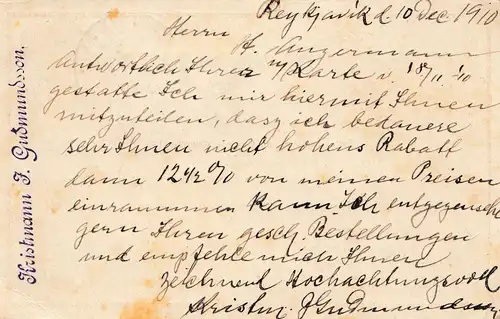 Reykjavík d. 10 Dec. 1910
Herrn
H. Angermann
Antwortlich Ihrer w/Karte v. 18/11 10
gestatte Ich mir hiermit Ihnen
mitzuteilen, dasz ich bedauere
sehr Ihnen nicht hohens Rabatt
dann 12 1/2 % von meinen Preisen
einraummen kann. Ich entgegensehe
gern Ihren gesch. Bestellungen
und empfehle mich Ihnen
Zeichnend Hochachtungsvoll
Kristm. J Guðmundsson
Kristmann J. Guðmundsson.